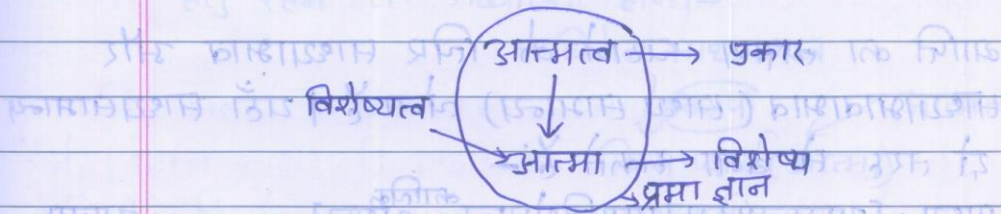 आत्मत्व → प्रकार
विशेष्यत्व
आत्मा → विशेष्य
प्रमा ज्ञान